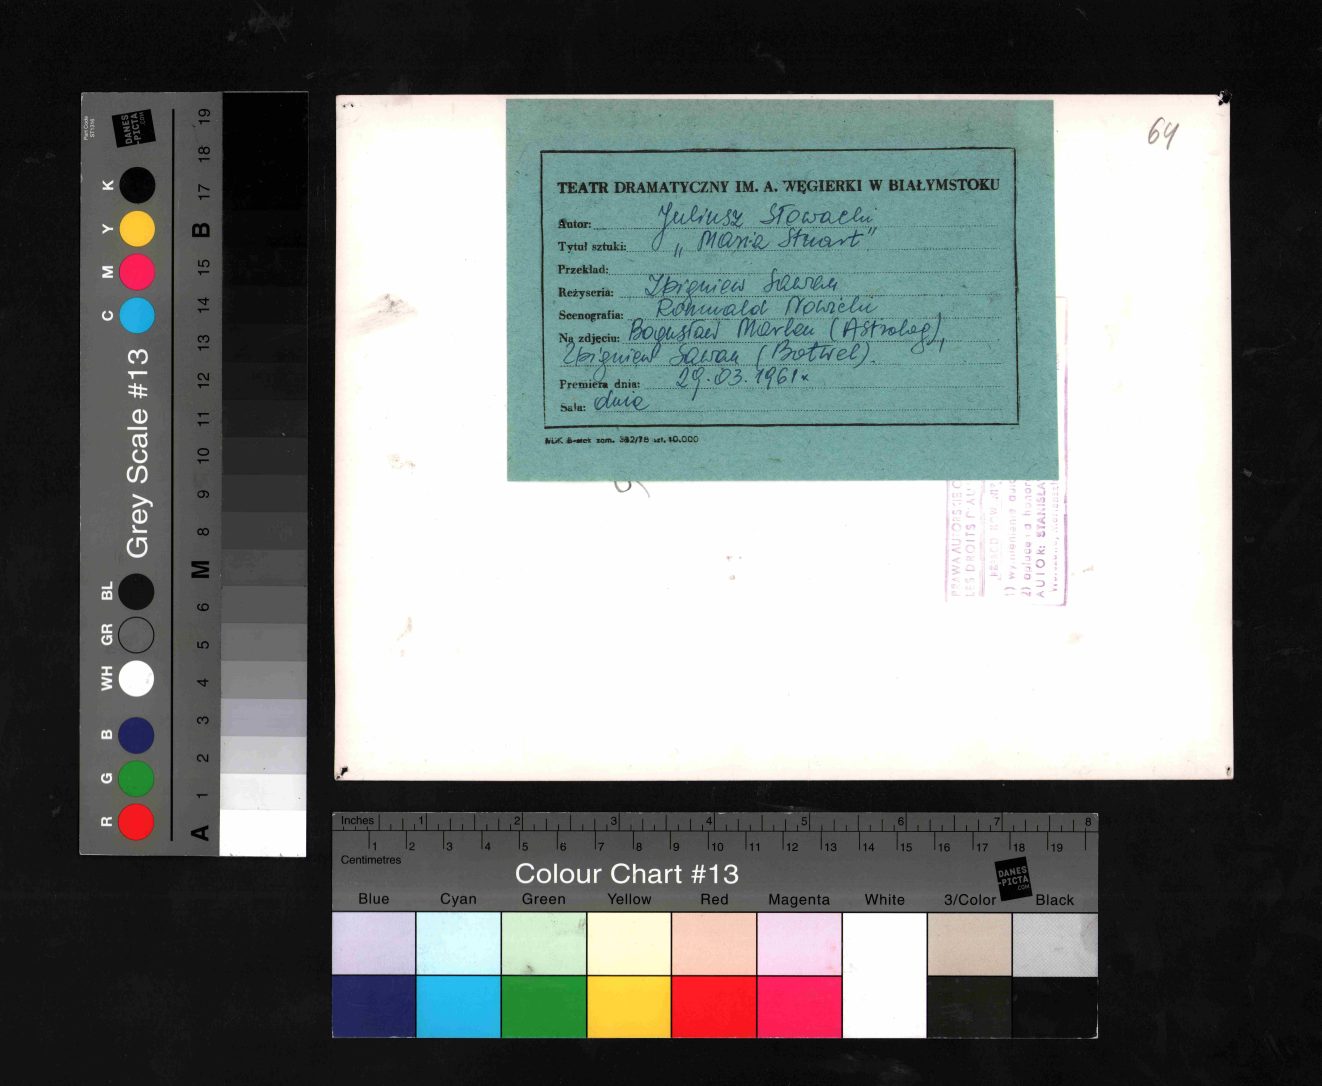 64
TEATR DRAMATYCZNY IM. A. WĘGIERKI W BIAŁYMSTOKU
Autor: Juliusz Słowacki
Tytuł sztuki: „Maria Stuart”
Przekład:
Reżyseria: Zbigniew Sawan
Scenografia: Romuald Nowicki
Na zdjęciu: Bogusław Marlen (Astrolog),
Zbigniew Sawan (Botwel).
Premiera dnia: 29.03.1961r
Sala: duża
zam. 382/78 szt. 10.000
PRAWA AUTORSKIE
LES DROITS D'AU
1) wymienianie
2)
AUTOR: STANISŁA
Grey Scale #13
DANES
-PICTA
.COM
R G B WH GR BL C M Y K
A 1 2 3 4 5 6 M 8 9 10 11 12 13 14 15 B 17 18 19
Inches 1 2 3 4 5 6 7 8
Centimetres 1 2 3 4 5 6 7 8 9 10 11 12 13 14 15 16 17 18 19
Colour Chart #13
DANES
-PICTA
.COM
Blue Cyan Green Yellow Red Magenta White 3/Color Black